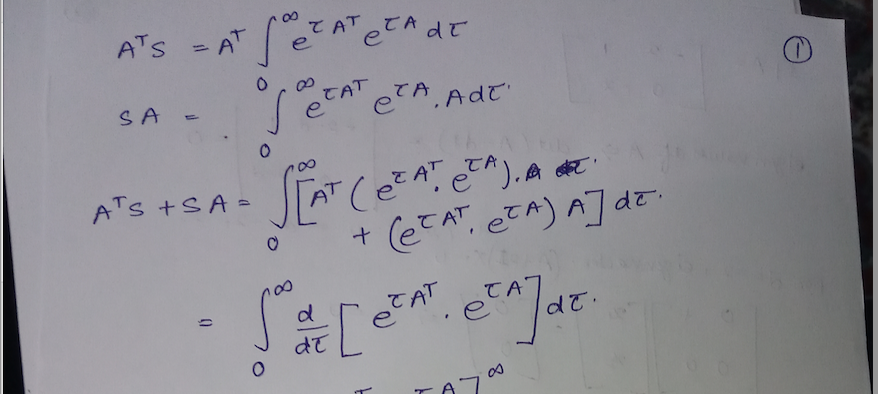 ①
AᵀS = Aᵀ ∫₀^∞ e^{τAᵀ} e^{τA} dτ
SA = ∫₀^∞ e^{τAᵀ} e^{τA} . A dτ.
AᵀS + SA = ∫₀^∞ [Aᵀ (e^{τAᵀ} . e^{τA}).
+ (e^{τAᵀ} . e^{τA}) A] dτ.
= ∫₀^∞ d/dτ [e^{τAᵀ} . e^{τA}] dτ.